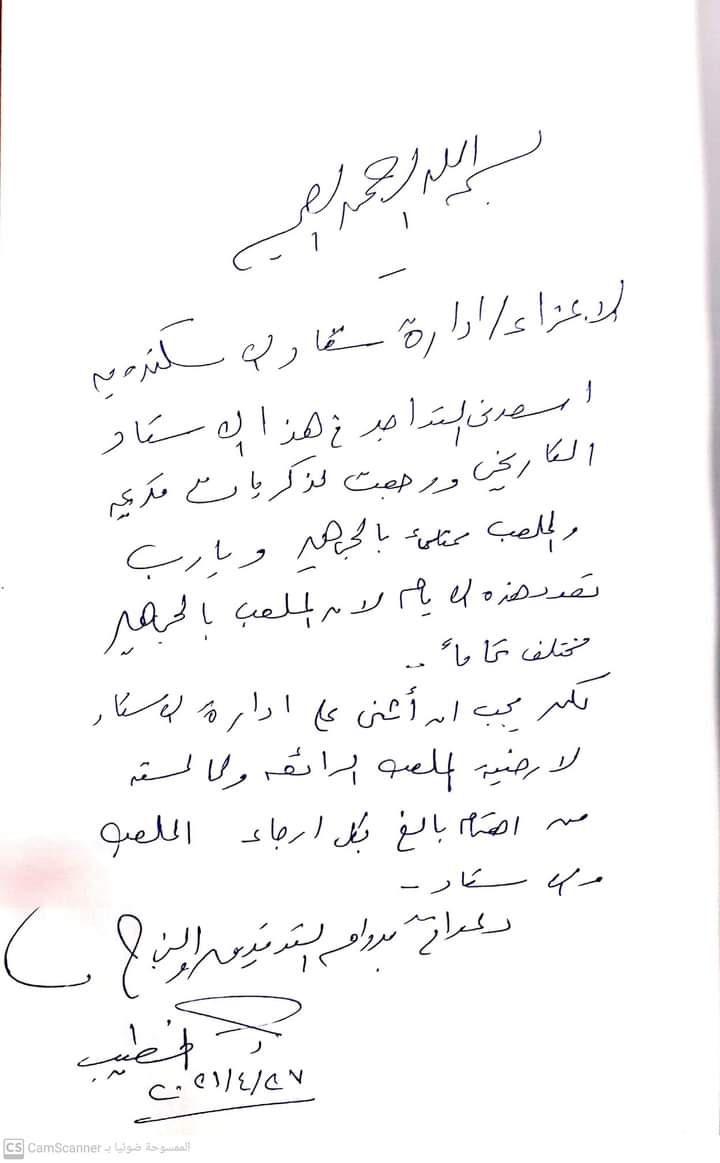 بسم الله الرحمن الرحيم
الاعزاء / ادارة ستاد الاسكندرية
اسعدنى التواجد فى هذا الاستاد
التاريخى ورجعت لذكريات قديمة
والملعب ممتلئ بالجماهير ويارب
تعود هذه الايام لان الملعب بالجماهير
مختلف تماماً ..
لكن يجب ان أثنى على ادارة الاستاد
لارضية الملعب الرائعه ولما لمسته
من اهتمام بالغ بكل ارجاء الملعب
والاستاد -
بدوام التوفيق والنجاح
الخطيب
٢٠٢١/٤/٢٧
CS CamScanner الممسوحة ضوئيا بـ